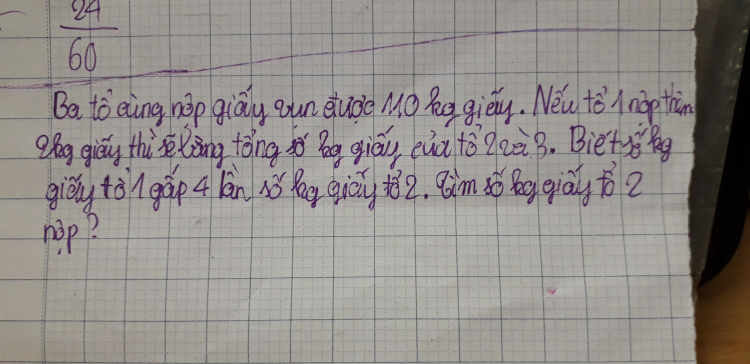 24
60
Ba tổ cùng nộp giấy vụn được 110 kg giấy. Nếu tổ 1 nộp thêm
2kg giấy thì sẽ bằng tổng số kg giấy của tổ 2 và 3. Biết số kg
giấy tổ 1 gấp 4 lần số kg giấy tổ 2. Tìm số kg giấy tổ 2
nộp?